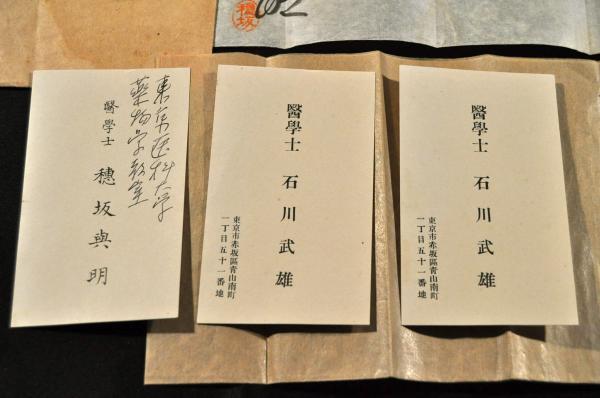 穂坂
東京医科大学
薬物学教室
醫學士 穗坂與明
醫學士 石川武雄
東京市赤坂區青山南町
一丁目五十一番地
醫學士 石川武雄
東京市赤坂區青山南町
一丁目五十一番地